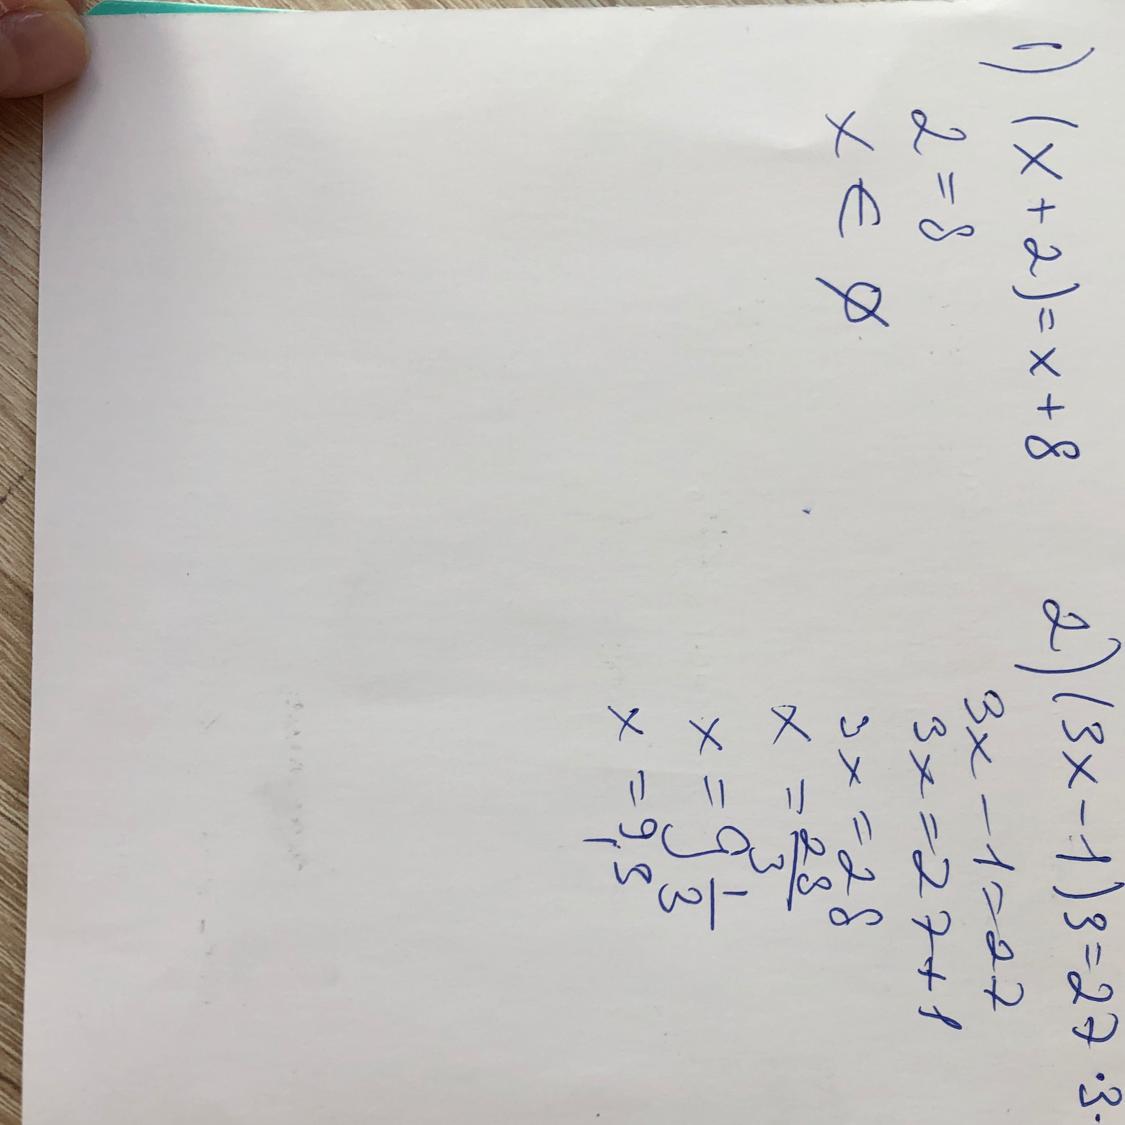 1) (x+2)=x+8
2=8
x∈∅
2) (3x-1)3=27·3.
3x-1=27
3x=27+1
3x=28
x=28/3
x=9 1/3